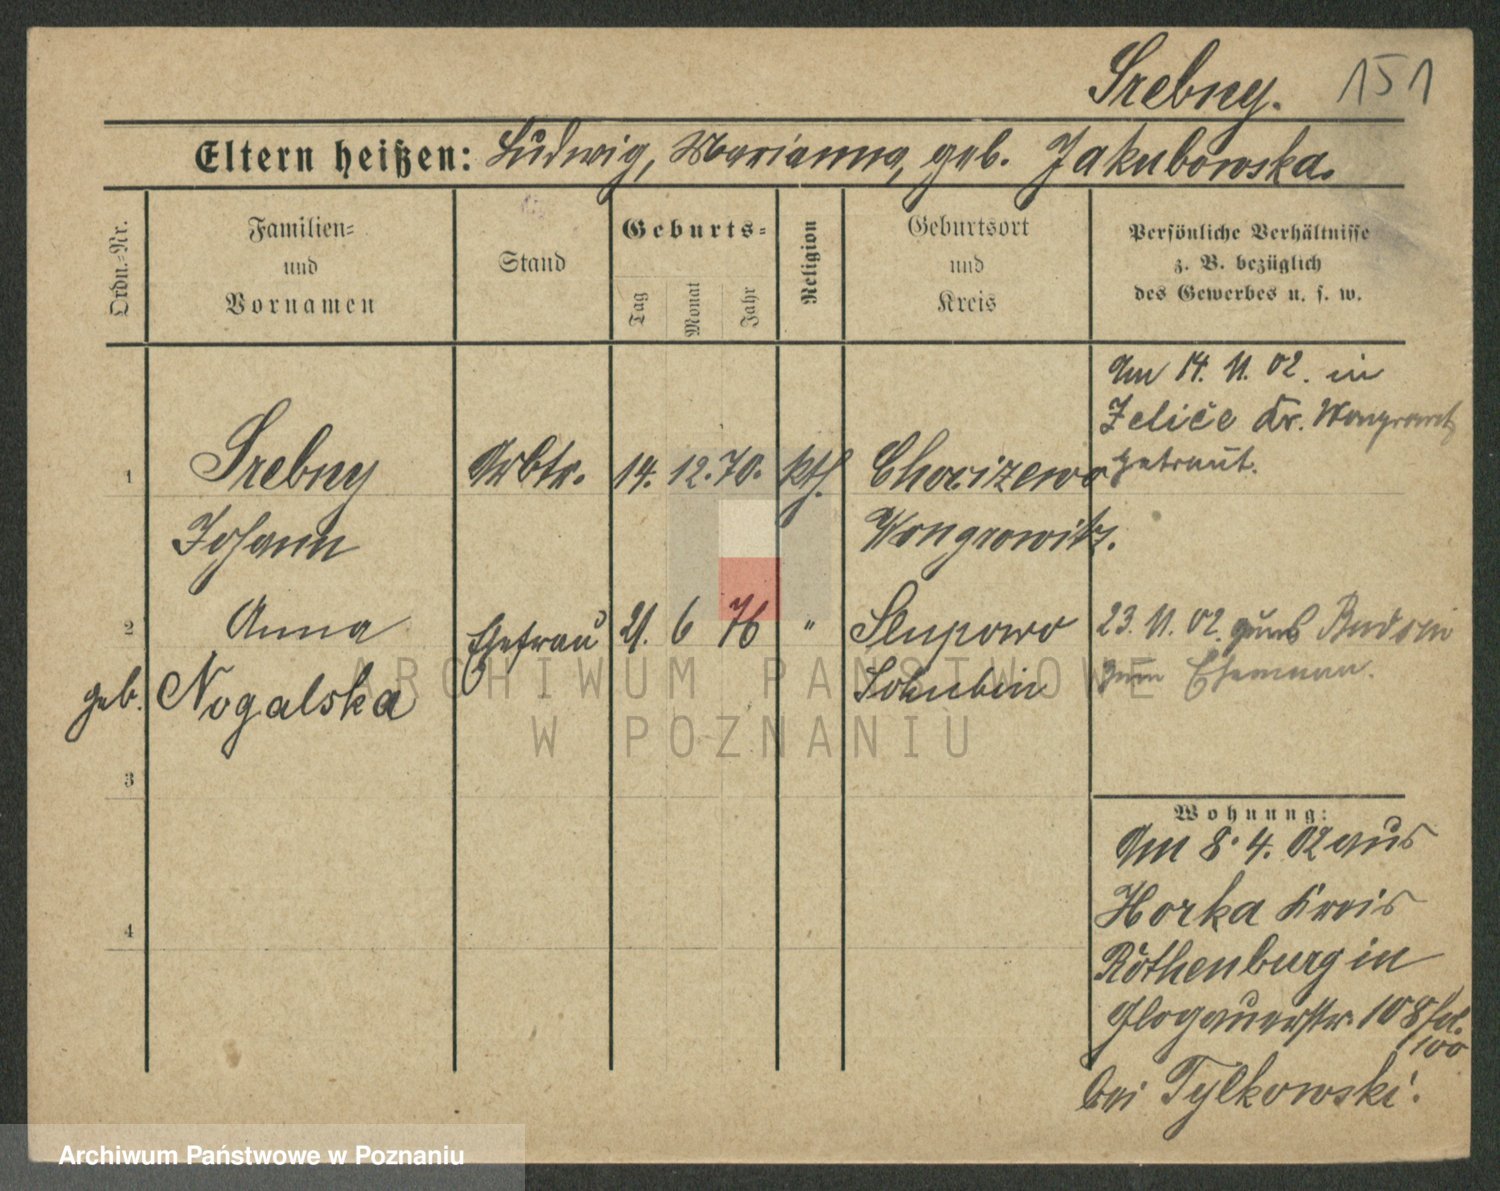 Srebny. 151
Eltern heißen: Ludwig, Marianna, geb. Jakubowska.
Ordn.-Nr.
Familien-
und
Vornamen
Stand
Geburts-
Tag
Monat
Jahr
Religion
Geburtsort
und
Kreis
Persönliche Verhältnisse
z. B. bezüglich
des Gewerbes u. s. w.
Am 14. 11. 02. in
Zelice Kr. Wongrowitz
getraut.
1 Srebny Arbtr. 14. 12. 70. kth. Chorizewo
Johann Wongrowitz.
2 Anna Ehefrau 21. 6 76 " Slupowo 23. 11. 02. zum
geb. Nogalska Schubin zum Ehemann.
3
4
Wohnung:
Am 8. 4. 02 aus
Horka Kreis
Rothenburg in
Glogauerstr. 108
100
bei Tylkowski.
ARCHIWUM PAŃSTWOWE
W POZNANIU
Archiwum Państwowe w Poznaniu